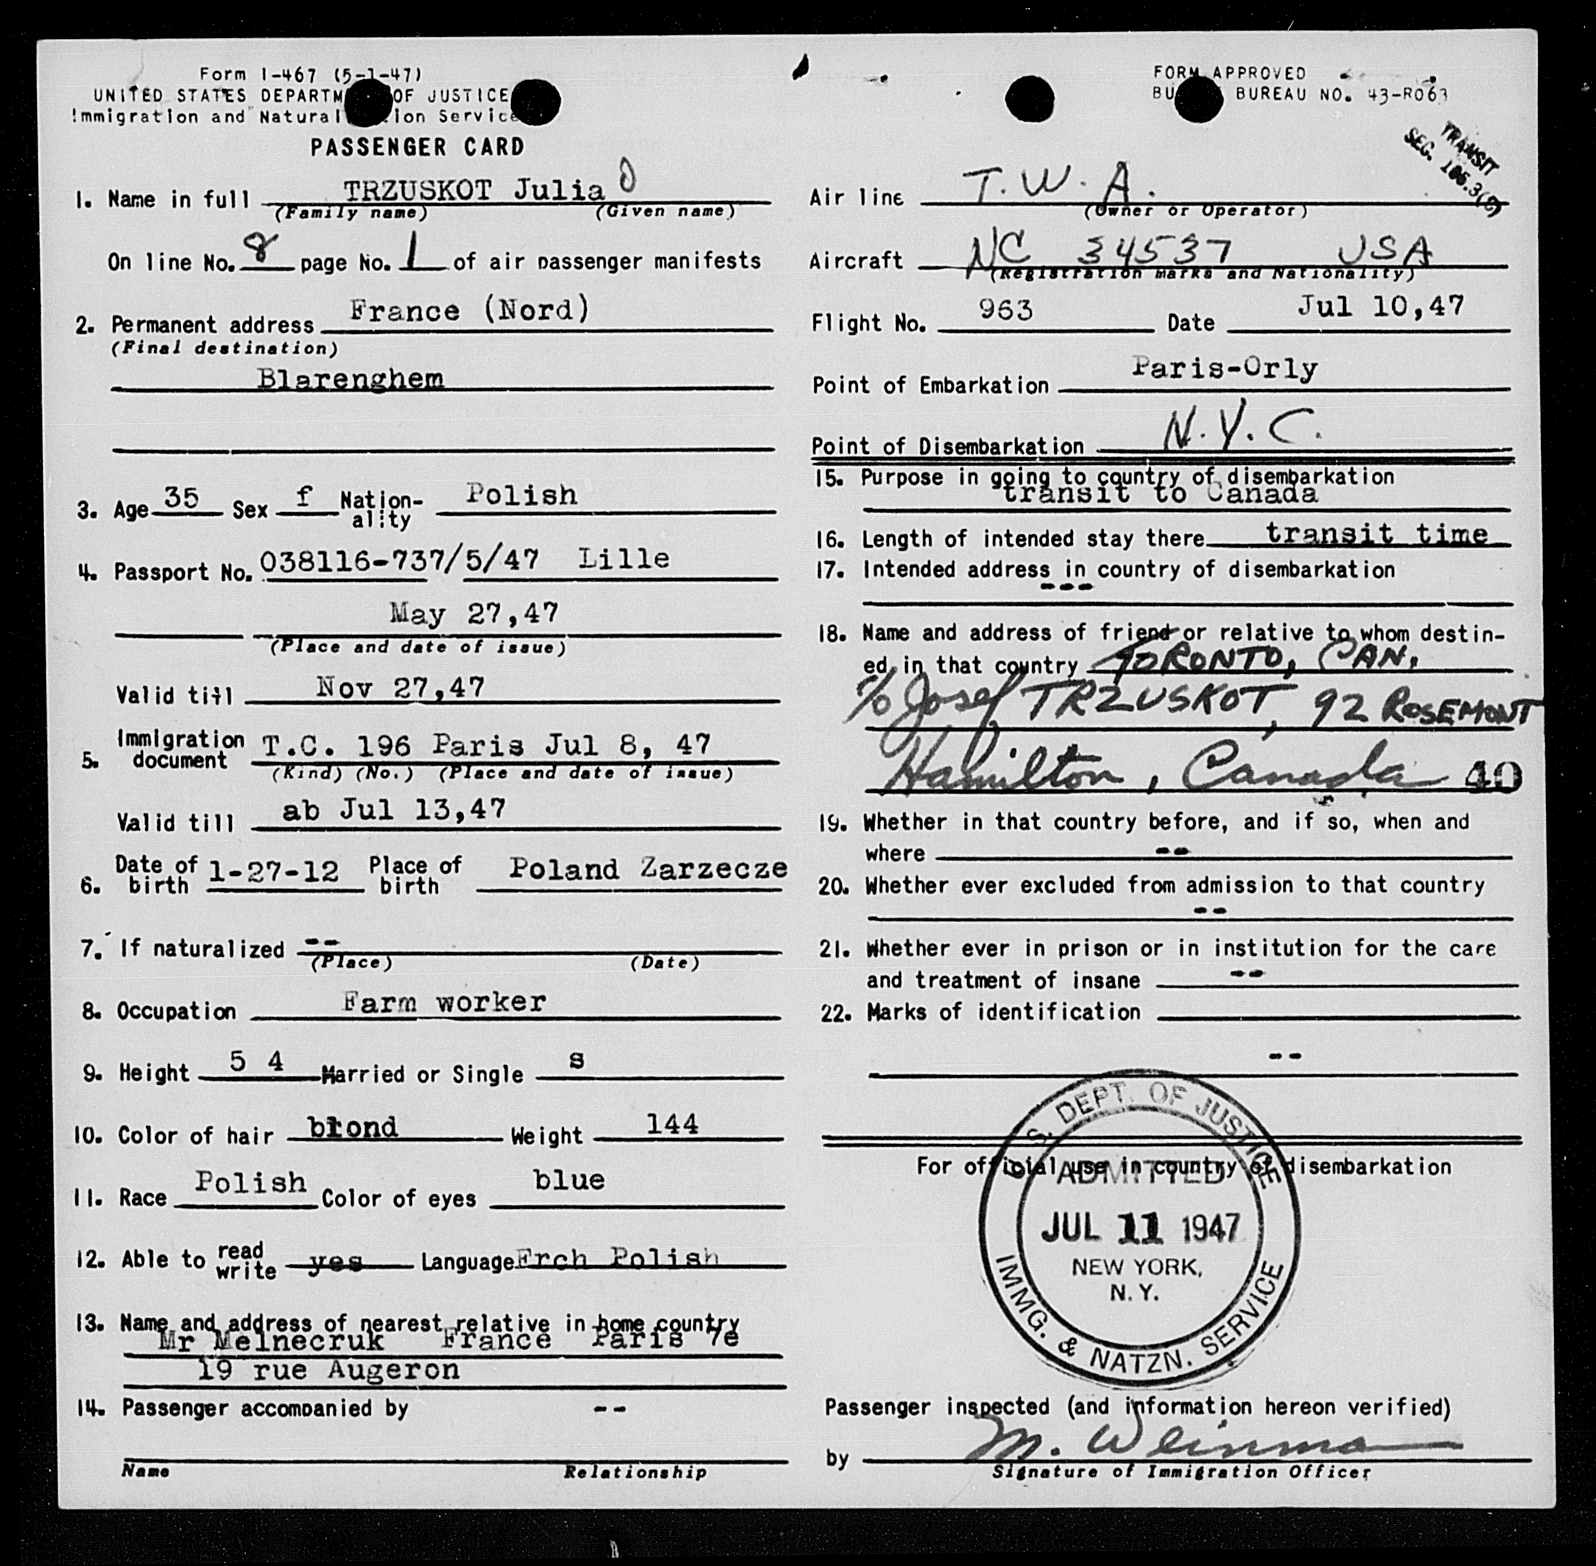 Form I-467 (5-1-47)
UNITED STATES DEPARTM OF JUSTICE
Immigration and Natural ion Service
PASSENGER CARD
1. Name in full TRZUSKOT Julia
(Family name) (Given name)
On line No. 8 page No. 1 of air passenger manifests
2. Permanent address France (Nord)
(Final destination)
Blarenghem
3. Age 35 Sex f Nation-ality Polish
4. Passport No. 038116-737/5/47 Lille
May 27,47
(Place and date of issue)
Valid till Nov 27,47
5. Immigration document T.C. 196 Paris Jul 8, 47
(Kind) (No.) (Place and date of issue)
Valid till ab Jul 13,47
6. Date of birth 1-27-12 Place of birth Poland Zarzecze
7. If naturalized --
(Place) (Date)
8. Occupation Farm worker
9. Height 5 4 Married or Single s
10. Color of hair blond Weight 144
11. Race Polish Color of eyes blue
12. Able to read write yes Language Frch Polish
13. Name and address of nearest relative in home country
Mr Melnecruk France Paris 7e
19 rue Augeron
14. Passenger accompanied by --
Name Relationship
FORM APPROVED
BU BUREAU NO. 43-R063
TRANSIT
SEC.
Air line T.W.A.
(Owner or Operator)
Aircraft NC 34537 USA
(Registration marks and Nationality)
Flight No. 963 Date Jul 10,47
Point of Embarkation Paris-Orly
Point of Disembarkation N.Y.C.
15. Purpose in going to country of disembarkation
transit to Canada
16. Length of intended stay there transit time
17. Intended address in country of disembarkation
---
18. Name and address of friend or relative to whom destin-
ed in that country TORONTO, CAN.
c/o Josef TRZUSKOT, 92 ROSEMONT
Hamilton, Canada 40
19. Whether in that country before, and if so, when and
where --
20. Whether ever excluded from admission to that country
--
21. Whether ever in prison or in institution for the care
and treatment of insane --
22. Marks of identification
--
For official use in country of disembarkation
U. S. DEPT. OF JUSTICE
ADMITTED
JUL 11 1947
NEW YORK,
N. Y.
IMMG. & NATZN. SERVICE
Passenger inspected (and information hereon verified)
by M. Weinman
Signature of Immigration Officer